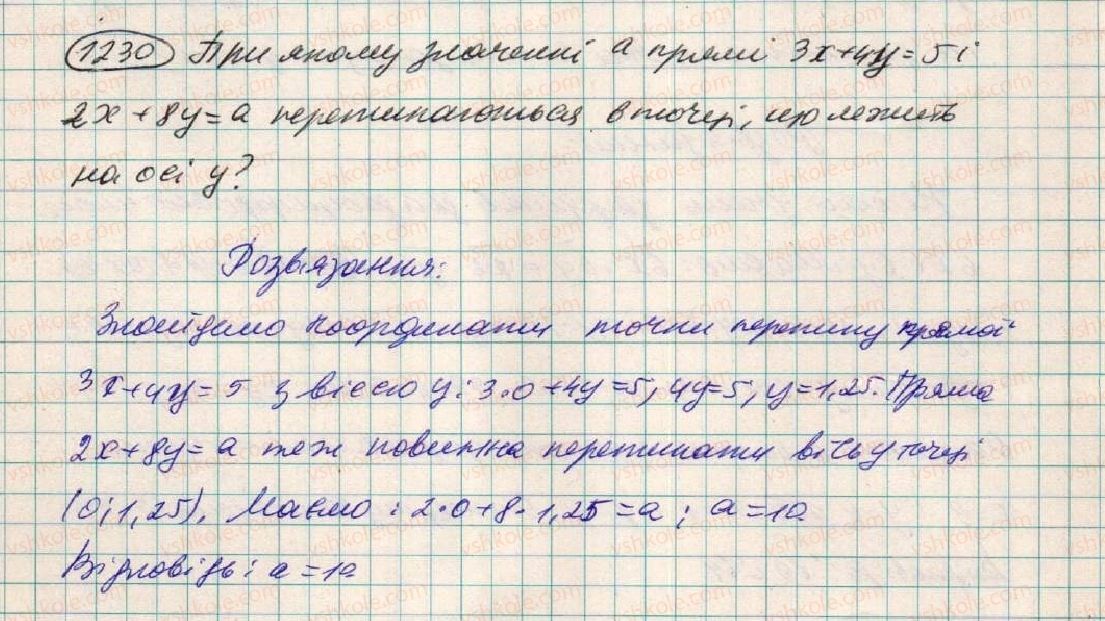 1230 При якому значенні а прямі 3x+4y=5 і
2x+8y=а перетинаються в точці, що лежить
на осі y?
Розвязання:
Знайдемо координати точки перетину прямої
3x+4y=5 з віссю y: 3·0+4y=5; 4y=5; y=1,25. Пряма
2x+8y=а теж повинна перетинати вісь y точці
(0;1,25). Маємо: 2·0+8·1,25=а; а=10
Відповідь: а=10